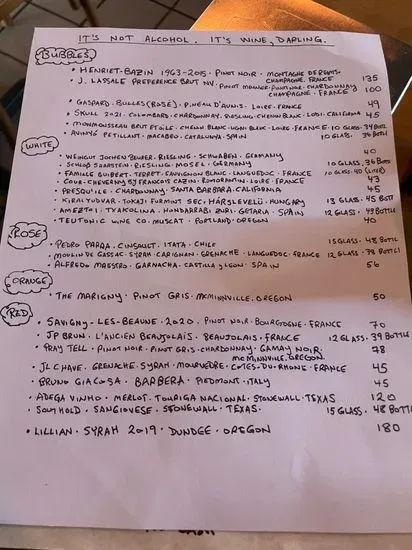 IT'S NOT ALCOHOL. IT'S WINE, DARLING.
BUBBLES
• HENRIET-BAZIN 1963-2015 · PINOT NOIR · MONTAGNE DE REIMS · CHAMPAGNE · FRANCE 135
• J. LASSALE PREFERENCE BRUT NV · PINOT MEUNIER · PINOT NOIR · CHARDONNAY CHAMPAGNE · FRANCE 100
• GASPARD · BULLES (ROSÉ) · PINEAU D'AUNIS · LOIRE · FRANCE 49
• SKURK 2021 · COLOMBARD · CHARDONNAY, RIESLING · CHENIN BLANC · LODI · CALIFORNIA 45
• MONMOUSSEAU BRUT ETOILE · CHENIN BLANC · UGNI BLANC · LOIRE · FRANCE 10 GLASS · 34 BOTTLE
• AVINYÓ PETILLANT · MACABEO · CATALUNYA · SPAIN 10 GLASS · 36 BOTTLE
WHITE
• WEINGUT JOHNYS BEURER · RIESLING · SCHWABEN · GERMANY 40
• SCHLOß SAARSTEIN · RIESLING · MOSEL · GERMANY 10 GLASS · 36 BOTTLE
• FAMILLE GUIBERT · TERRET · SAUVIGNON BLANC · LANGUEDOC · FRANCE 10 GLASS · 40 (LITER)
• COUR-CHEVERNY BY FRANCOIS CAZIN · ROMORANTIN · LOIRE · FRANCE 43
• PRESQU'ILE · CHARDONNAY · SANTA BARBARA · CALIFORNIA 45
• KIRALYUDVAR · TOKAJI FURMINT SEC, HÁRSLEVELŰ · HUNGARY 13 GLASS · 45 BOTTLE
• AMEZTOI · TXAKOLINA · HONDARRABI ZURI · GETARIA · SPAIN 12 GLASS · 49 BOTTLE
• TEUTONIC WINE CO · MUSCAT · PORTLAND · OREGON 40
ROSÉ
• PEDRO PARRA · CINSAULT · ITATA · CHILE 15 GLASS · 48 BOTTLE
• MOULIN DE GASSAC · SYRAH · CARIGNAN · GRENACHE · LANGUEDOC · FRANCE 12 GLASS · 38 BOTTLE
• ALFREDO MAESTRO · GARNACHA · CASTILLA Y LEON · SPAIN 56
ORANGE
• THE MARIGNY · PINOT GRIS · MCMINNVILLE, OREGON 50
RED
• SAVIGNY-LES-BEAUNE · 2020 · PINOT NOIR · BOURGOGNE · FRANCE 70
• JP BRUN · L'ANCIEN BEAUJOLAIS · BEAUJOLAIS · FRANCE 12 GLASS · 39 BOTTLE
• FRAY TELL · PINOT NOIR · PINOT GRIS · CHARDONNAY · GAMAY NOIR, MCMINNVILLE, OREGON 78
• JL CHAVE · GRENACHE · SYRAH · MOURVEDRE · COTES-DU-RHONE · FRANCE 45
• BRUNO GIACOSA · BARBERA · PIEDMONT · ITALY 45
• ADEGA VINHO · MERLOT · TOURIGA NACIONAL · STONEWALL · TEXAS 120
• SOUTHOLD · SANGIOVESE · STONEWALL · TEXAS 15 GLASS · 48 BOTTLE
• LILLIAN · SYRAH 2019 · DUNDEE · OREGON 180